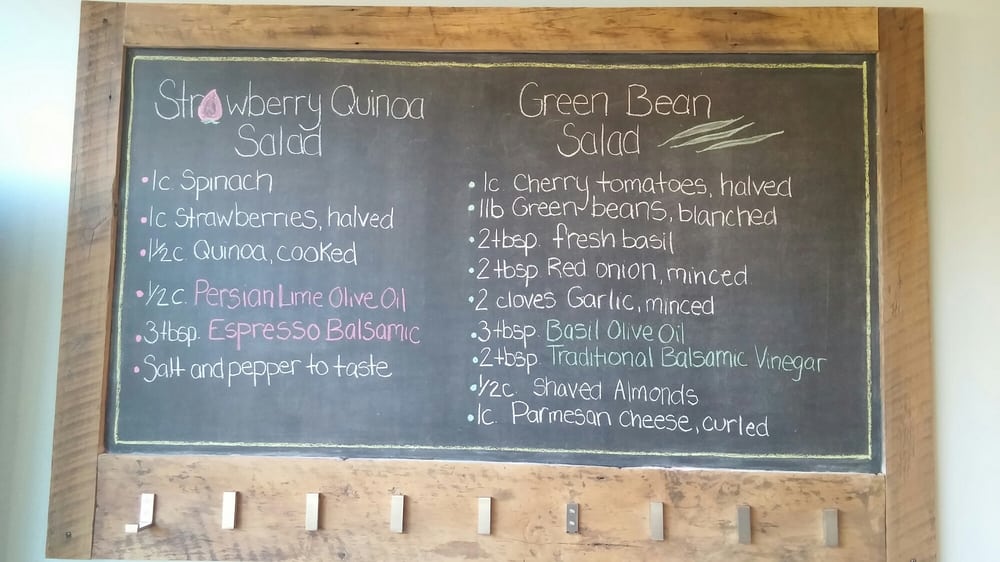 Strawberry Quinoa
Salad
• 1c. Spinach
• 1c Strawberries, halved
• 1 1/2c. Quinoa, cooked
• 1/2c. Persian Lime Olive Oil
• 3tbsp. Espresso Balsamic
• Salt and pepper to taste
Green Bean
Salad
• 1c. Cherry tomatoes, halved
• 1lb Green beans, blanched
• 2tbsp. fresh basil
• 2tbsp Red onion, minced
• 2 cloves Garlic, minced
• 3tbsp. Basil Olive Oil
• 2tbsp. Traditional Balsamic Vinegar
• 1/2c. Shaved Almonds
• 1c. Parmesan cheese, curled